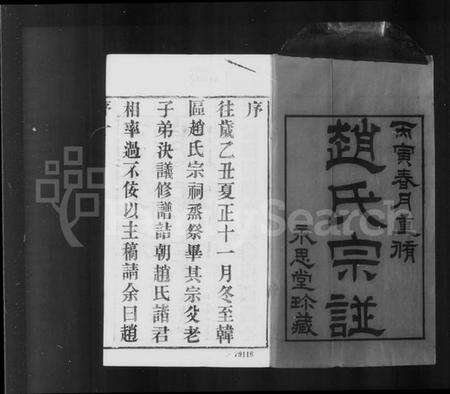 丙寅春月重脩
趙氏宗譜
永思堂珍藏
序
往歲乙丑夏正十一月冬至韓
區趙氏宗祠烝祭畢其宗父老
子弟決議修譜詰朝趙氏諸君
相率過不佞以主稿請余曰趙
序 一
FamilySearch
79116